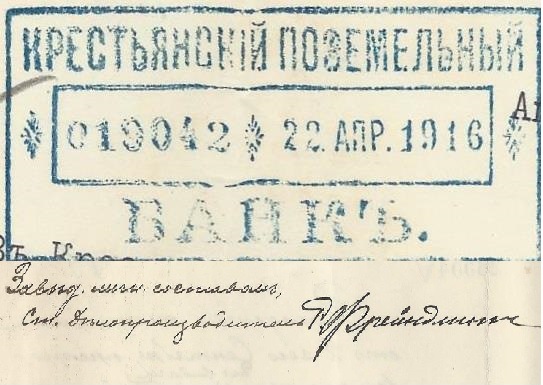 КРЕСТЬЯНСКІЙ ПОЗЕМЕЛЬНЫЙ
019042 22. АПР. 1916
БАНКЪ.
Завѣд. личн. составомъ,
Ст. дѣлопроизводитель